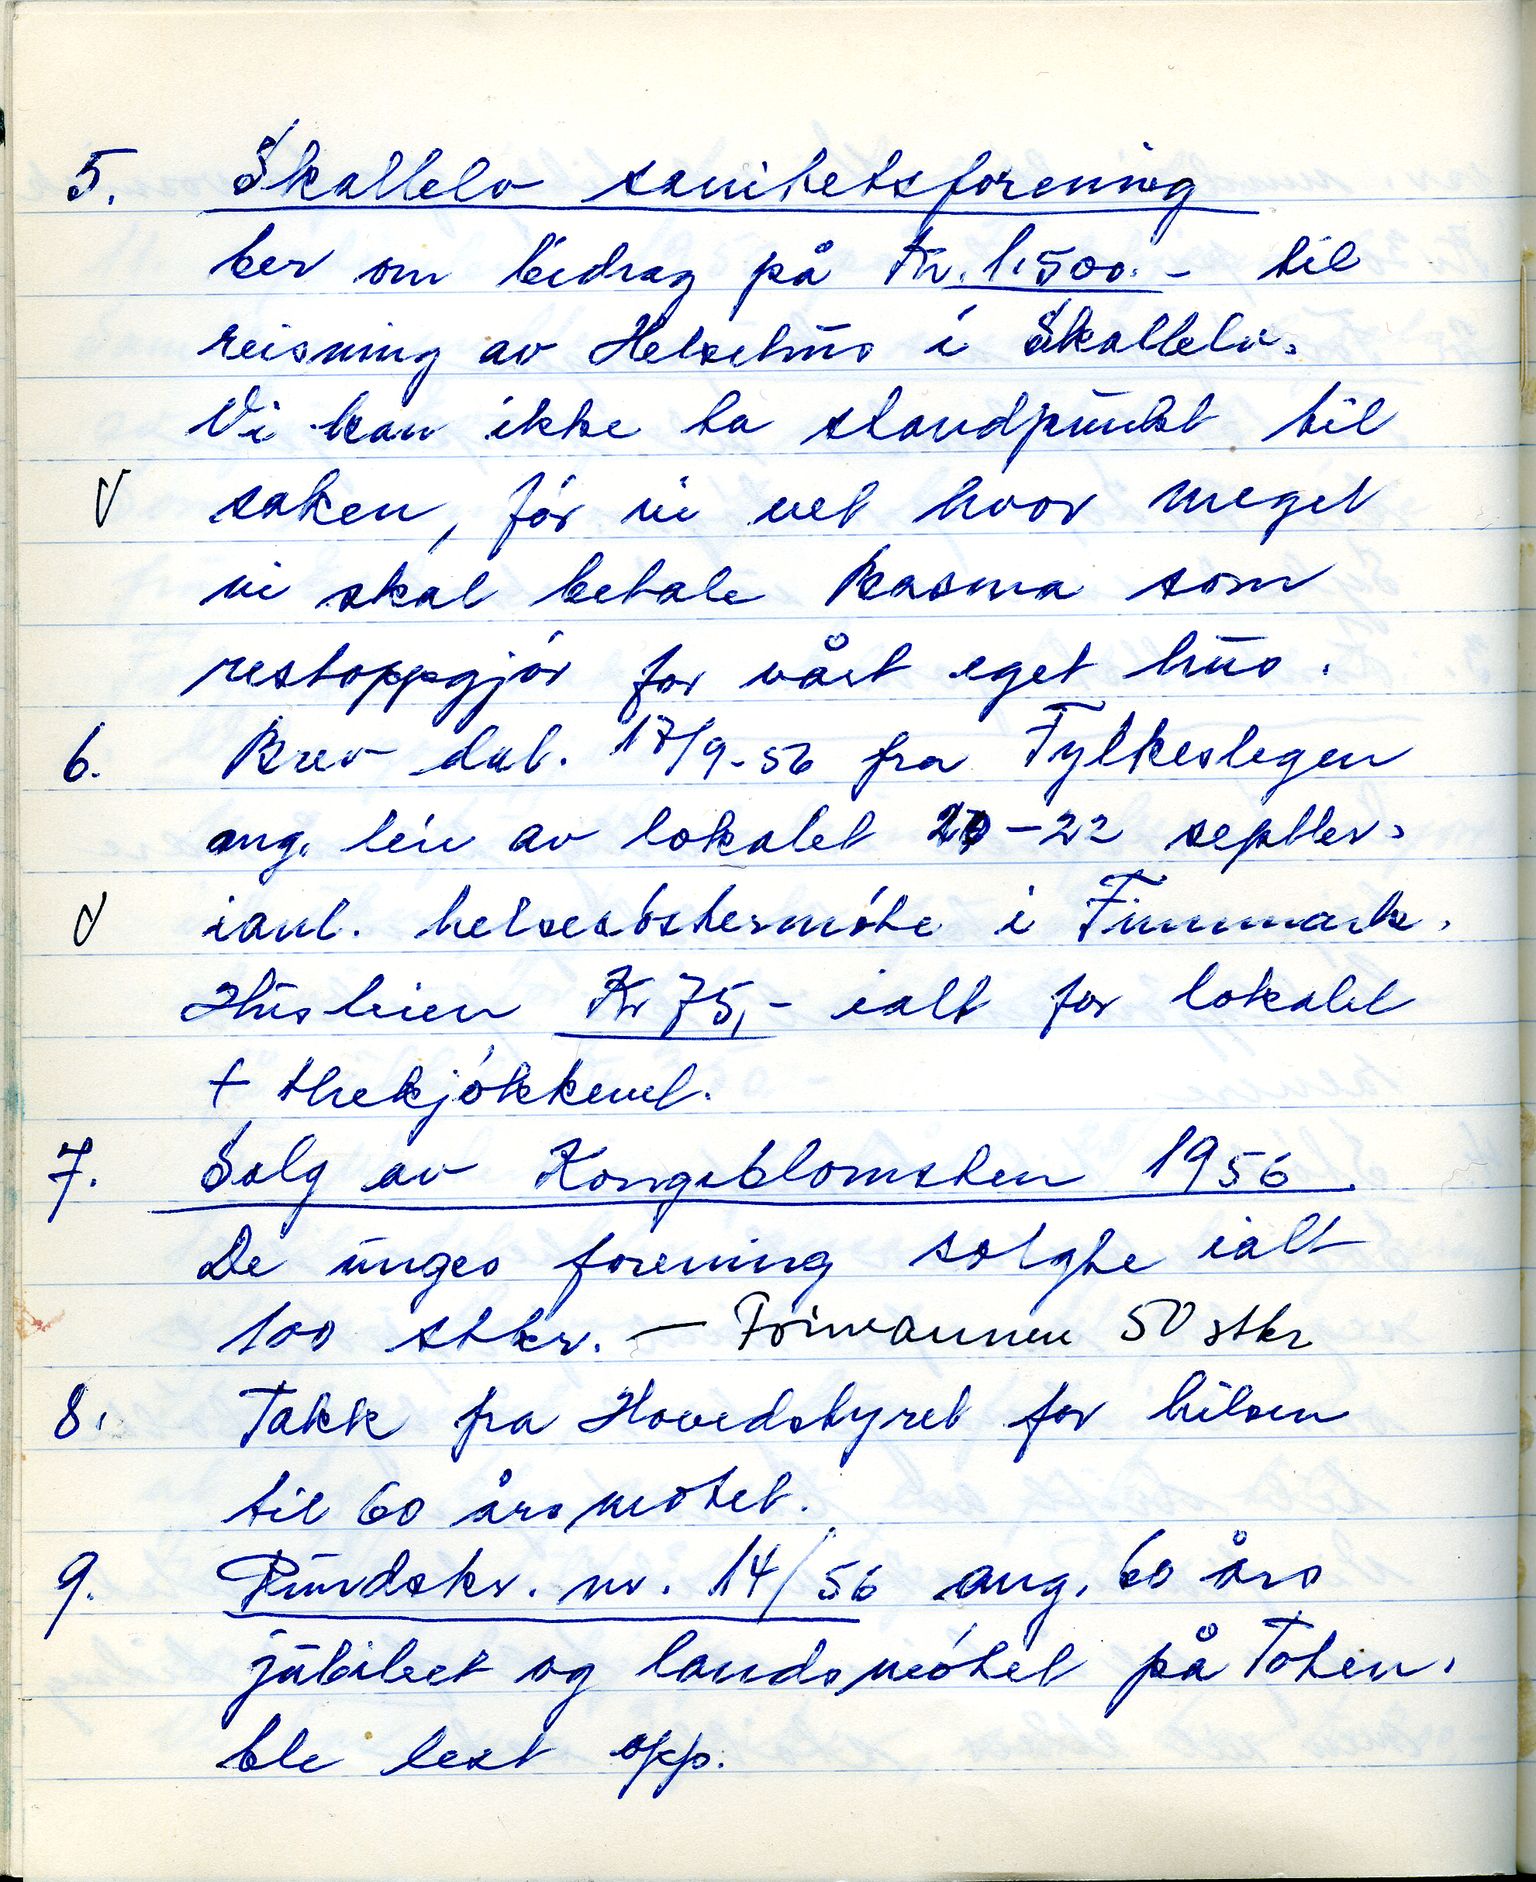 5. Skallelv sanitetsforening
ber om bidrag på Kr. 1.500.- til
reisning av Helsehus i Skallelv.
Vi kan ikke ta standpunkt til
saken, før vi vet hvor meget
vi skal betale Kasma som
restoppgjør for vårt eget hus.
6. Brev dat. 17/9-56 fra Fylkeslegen
ang. leie av lokalet 20-22 septber.
ianl. helsesöstermöte i Finnmark.
Husleien Kr 75,- ialt for lokalet
+ thekjökkenet.
7. Salg av Kongsblomsten 1956.
De unges forening solgte ialt
100 stkr. — Frivannen 50 stkr
8. Takk fra Hovedstyret for hilsen
til 60 årsmötet.
9. Rundskr. nr. 14/56 ang. 60 års
jubileet og landsmötet på Toten.
ble lest opp.